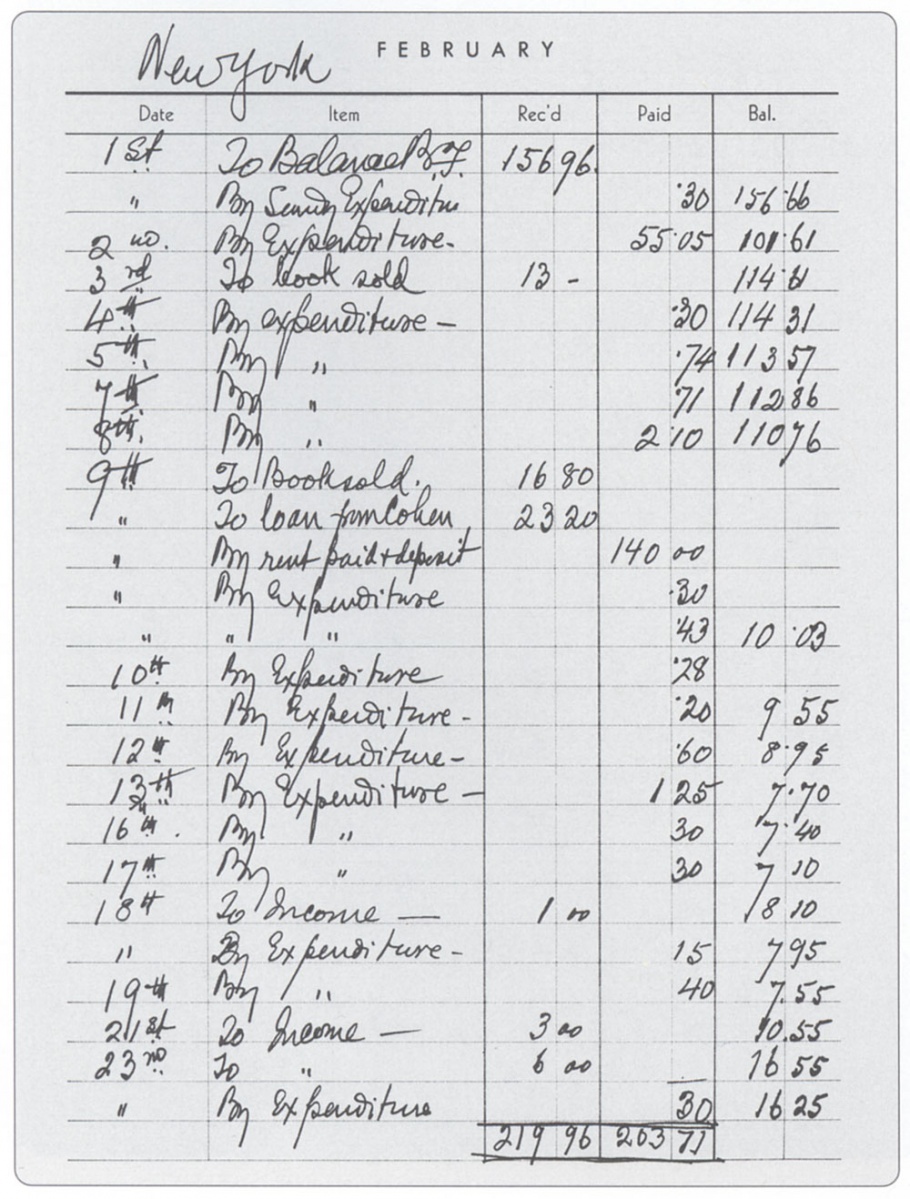 New York FEBRUARY
Date Item Rec'd Paid Bal.
1st To Balance B.F. 156 96.
" By Sundry Expenditure ·30 156·66
2nd. By Expenditure- 55·05 101·61
3rd To book sold 13 - 114·61
4th By expenditure - ·30 114 31
5th By " ·74 113 57
7th By " ·71 112 86
8th. By " 2·10 110 76
9th To Book sold. 16 80
" To loan from Cohen 23 20
" By rent paid + deposit 140 00
" By Expenditure ·30
" " " ·43 10 ·03
10th By Expenditure ·28
11th By Expenditure - ·20 9 55
12th By Expenditure- ·60 8·95
13th By Expenditure - 1 25 7·70
16th. By " 30 7·40
17th By " 30 7 10
18th To Income - 1 00 8 10
" By Expenditure - 15 7 95
19th By " 40 7.55
21st To Income - 3 00 10.55
23rd To " 6 00 16 55
" By Expenditure 30 16 25
219 96 203 71